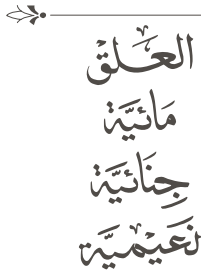 العَلق
مَائيَّة
جِنَائيَّة
نَعَيْميَّة